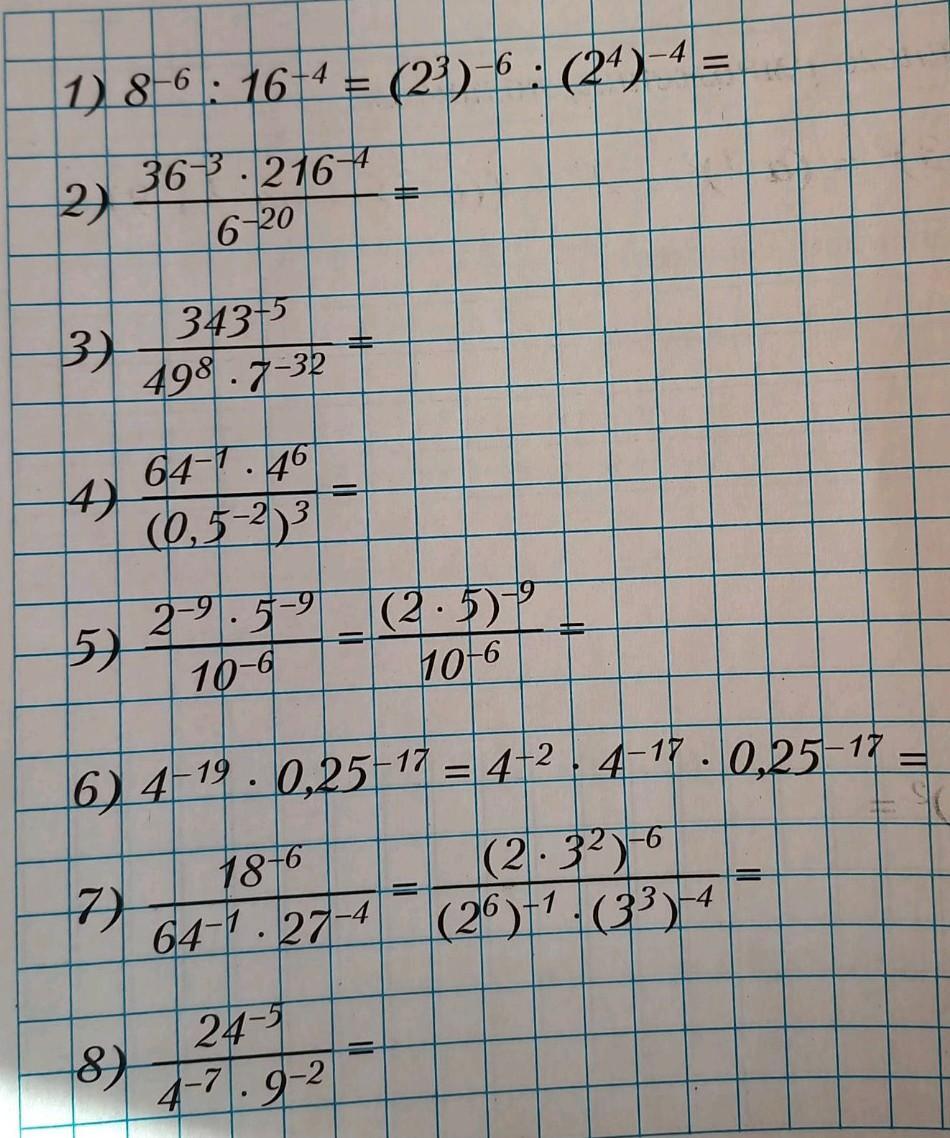 1) 8⁻⁶ : 16⁻⁴ = (2³)⁻⁶ : (2⁴)⁻⁴ =
2) (36⁻³ · 216⁻⁴) / 6⁻²⁰ =
3) 343⁻⁵ / (49⁸ · 7⁻³²) =
4) (64⁻¹ · 4⁶) / (0,5⁻²)³ =
5) (2⁻⁹ · 5⁻⁹) / 10⁻⁶ = (2 · 5)⁻⁹ / 10⁻⁶ =
6) 4⁻¹⁹ · 0,25⁻¹⁷ = 4⁻² · 4⁻¹⁷ · 0,25⁻¹⁷ =
7) 18⁻⁶ / (64⁻¹ · 27⁻⁴) = (2 · 3²)⁻⁶ / ((2⁶)⁻¹ · (3³)⁻⁴) =
8) 24⁻⁵ / (4⁻⁷ · 9⁻²) =